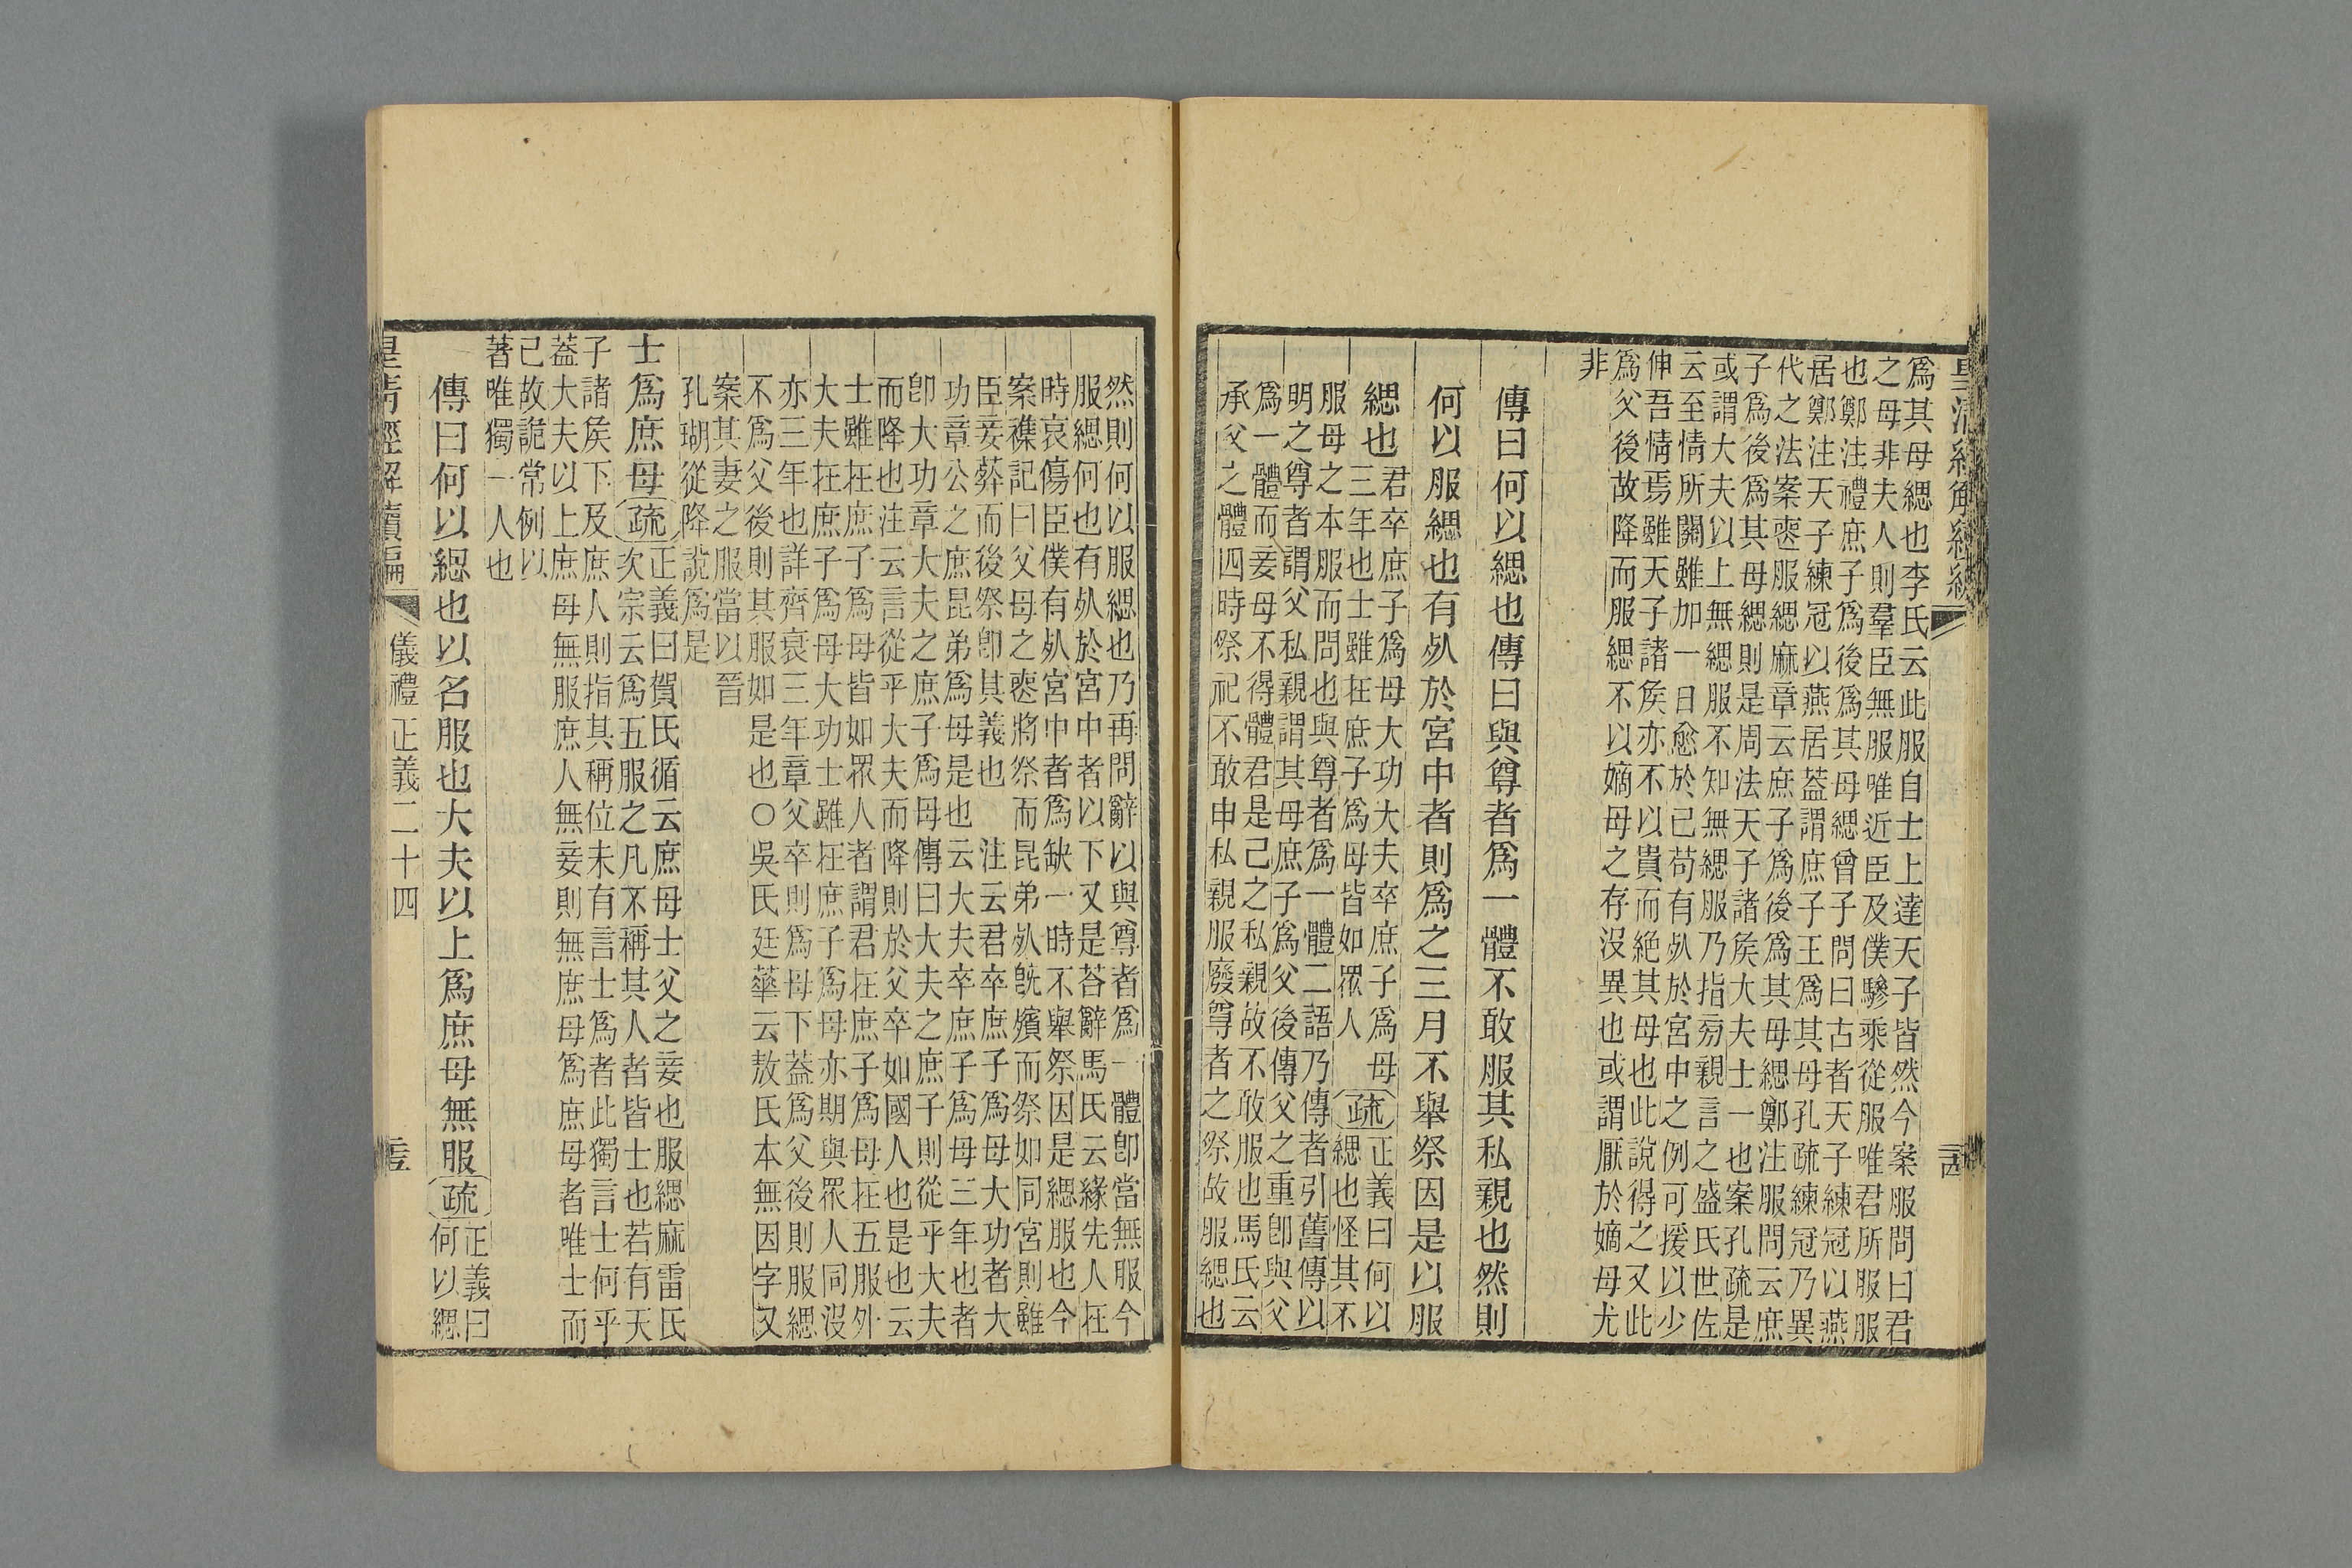 皇清經解續編
爲其母緦也李氏云此服自士上達天子皆然今案服問曰君
之母非夫人則羣臣無服唯近臣及僕驂乘從服唯君所服服
也鄭注禮庶子爲後爲其母緦曾子問曰古者天子練冠以燕
居鄭注天子練冠以燕居葢謂庶子王爲其母孔疏練冠乃異
代之法案喪服緦麻章云庶子爲後爲其母緦鄭注服問云庶
子爲後爲其母緦則是周法天子諸矦大夫士一也案孔疏是
或謂大夫以上無緦服不知無緦服乃指㫄親言之盛氏世佐
云至情所關雖加一日愈於已茍有𣦸於宮中之例可援以少
伸吾情焉雖天子諸矦亦不以貴而絶其母也此說得之又此
爲父後故降而服緦不以嫡母之存沒異也或謂厭於嫡母尤
非
傳曰何以緦也傳曰與尊者爲一體不敢服其私親也然則
何以服緦也有𣦸於宮中者則爲之三月不舉祭因是以服
緦也
君卒庶子爲母大功大夫卒庶子爲母
三年也士雖在庶子爲母皆如眾人
疏
正義曰何以
緦也怪其不
服母之本服而問也與尊者爲一體二語乃傳者引舊傳以
明之尊者謂父私親謂其母庶子爲父後傳父之重卽與父
爲一體而妾母不得體君是己之私親故不敢服也馬氏云
承父之體四時祭祀不敢申私親服廢尊者之祭故服緦也
然則何以服緦也乃再問辭以與尊者爲一體卽當無服今
服緦何也有𣦸於宮中者以下又是荅辭馬氏云緣先人在
時哀傷臣僕有𣦸宮中者爲缺一時不舉祭因是緦服也今
案襍記曰父母之喪將祭而昆弟𣦸旣殯而祭如同宮則雖
臣妾葬而後祭卽其義也 注云君卒庶子爲母大功者大
功章公之庶昆弟爲母是也云大夫卒庶子爲母三年也者
卽大功章大夫之庶子爲母傳曰大夫之庶子則從乎大夫
而降也注云言從乎大夫而降則於父卒如國人也是也云
士雖在庶子爲母皆如眾人者謂君在庶子爲母在五服外
大夫在庶子爲母大功士雖在庶子爲母亦期與眾人同沒
亦三年也詳齊衰三年章父卒則爲母下葢爲父後則服緦
不爲父後則其服如是也○吳氏廷華云敖氏本無因字又
案其妻之服當以晉
孔瑚從降說爲是
士爲庶母
疏
正義曰賀氏循云庶母士父之妾也服緦麻雷氏
次宗云爲五服之凡不稱其人者皆士也若有天
子諸矦下及庶人則指其稱位未有言士爲者此獨言士何乎
葢大夫以上庶母無服庶人無妾則無庶母爲庶母者唯士而
已故詭常例以
著唯獨一人也
傳曰何以緦也以名服也大夫以上爲庶母無服
疏
正義曰
何以緦
皇清經解續編
儀禮正義二十四